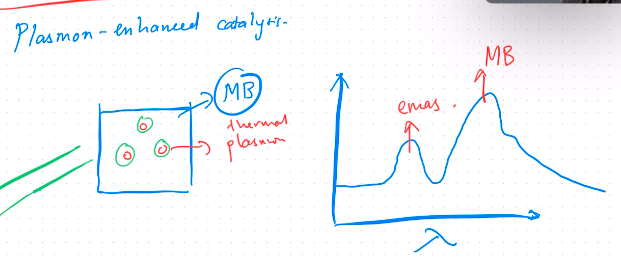 Plasmon-enhanced catalysis.
MB
thermal
plasmon
emas.
MB
λ